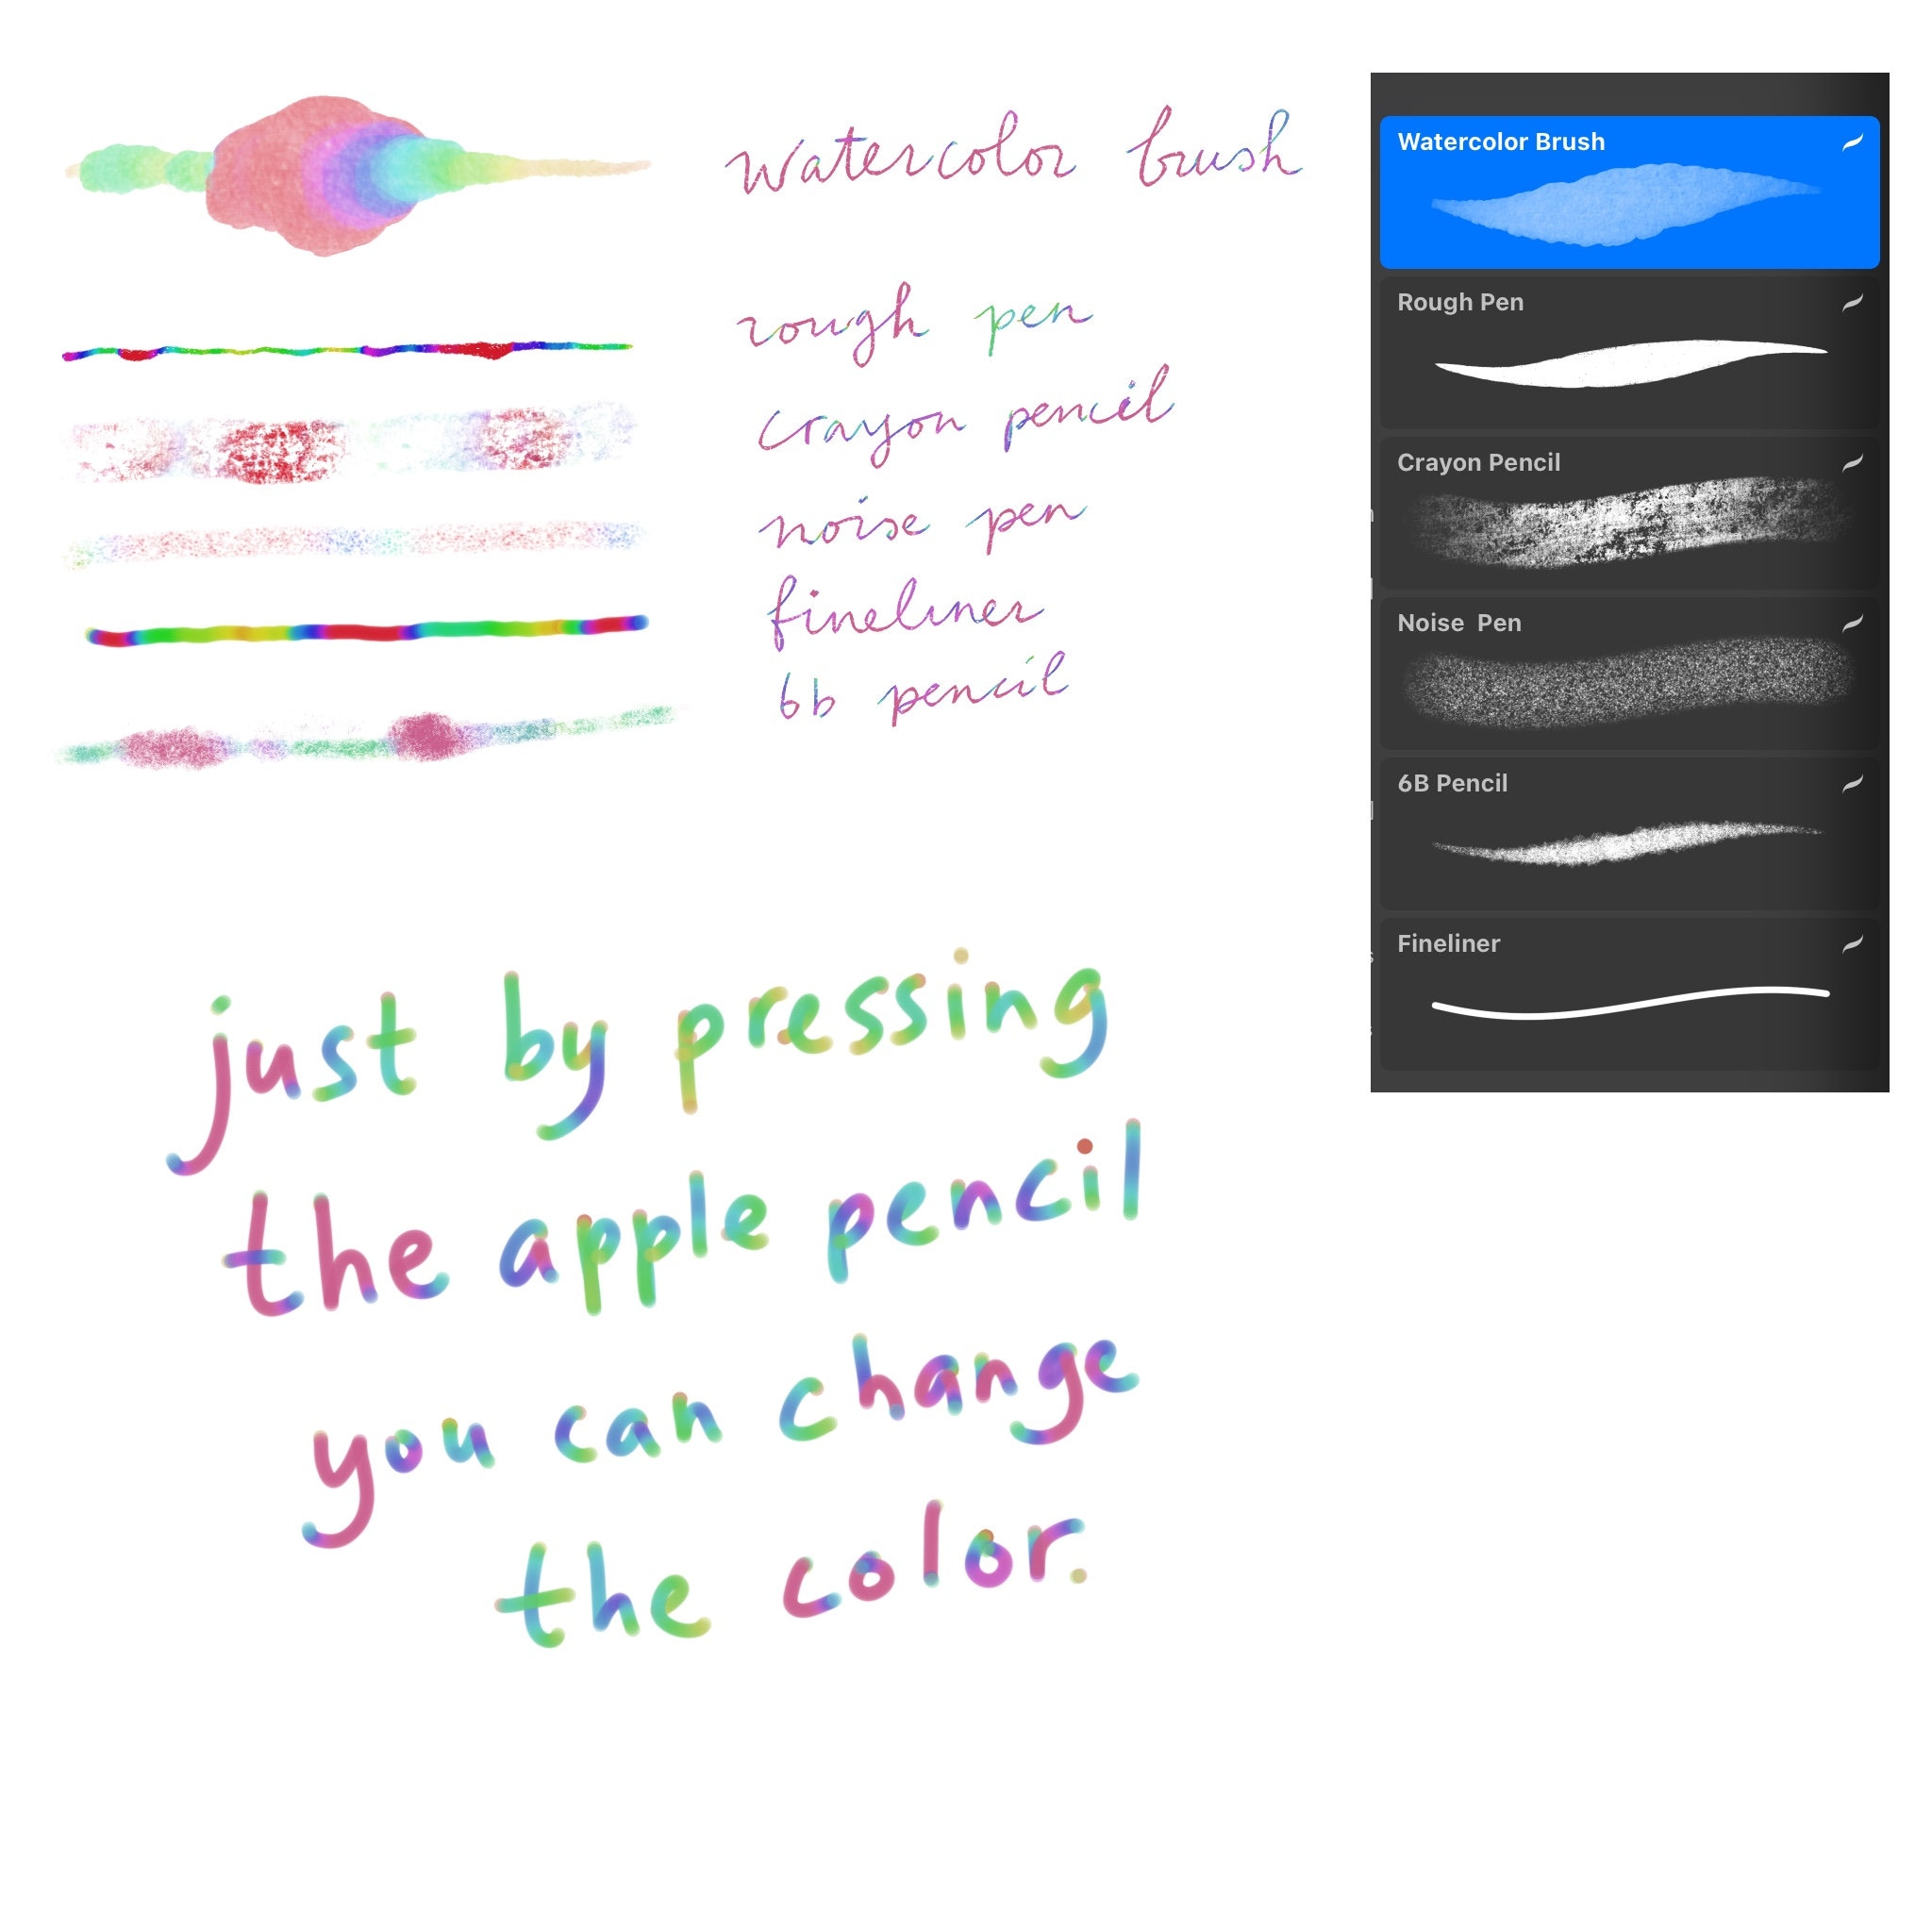 watercolor brush
rough pen
crayon pencil
noise pen
fineliner
6b pencil
Watercolor Brush
Rough Pen
Crayon Pencil
Noise  Pen
6B Pencil
Fineliner
just by pressing
the apple pencil
you can change
the color.